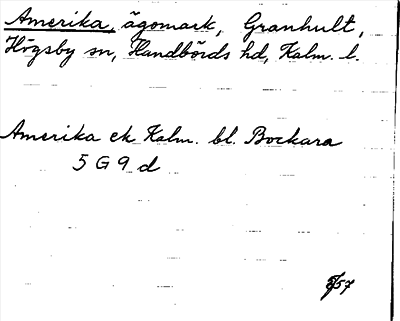 Amerika, ägomark, Granhult,
Högsby sn, Handbörds hd, Kalm. l.
Amerika ek Kalm. bl. Bockara
5 G 9 d